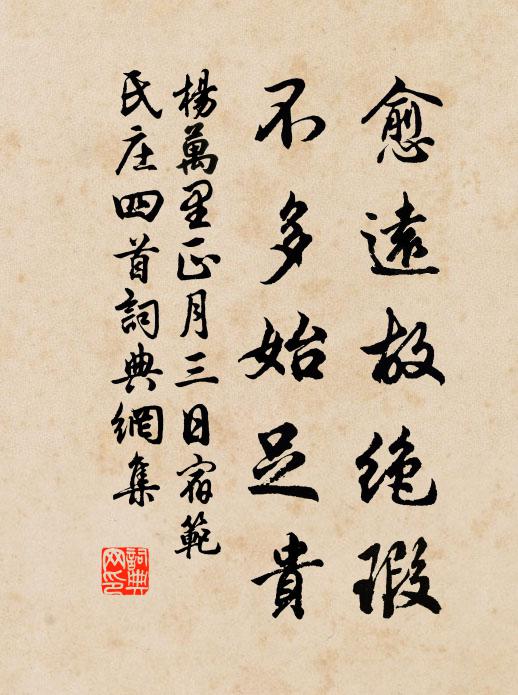 愈遠故絶瑕
不多始足貴
楊萬里正月三日宿範
氏庄四首詞典網集
詞典
网印